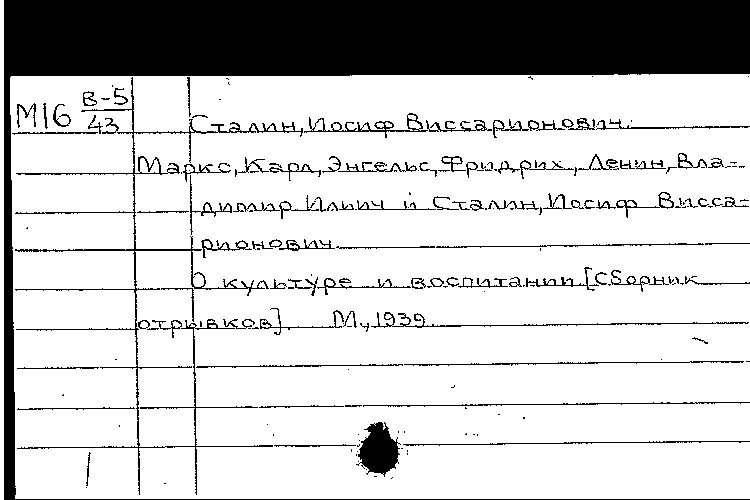 М16 В-5/43
Сталин, Иосиф Виссарионович.
Маркс, Карл, Энгельс, Фридрих, Ленин, Вла-
димир Ильич и Сталин, Иосиф Висса-
рионович.
О культуре и воспитании. [Сборник
отрывков]. М., 1939.